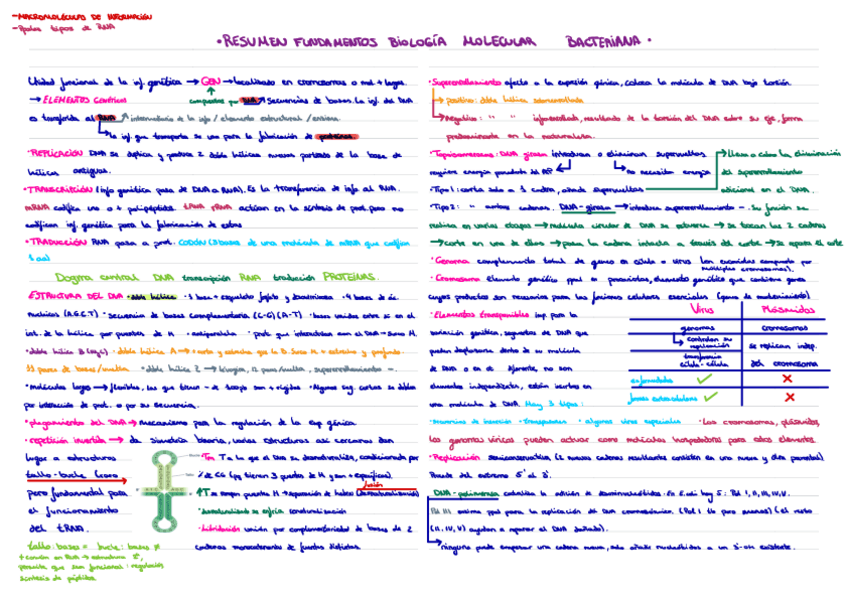 -MACROMOLÉCULAS DE INFORMACIÓN
-Todos tipos de RNA
·RESUMEN FUNDAMENTOS BIOLOGÍA MOLECULAR BACTERIANA·
Unidad funcional de la inf. genética → GEN → localizado en cromosomas o mol + largas.
→ ELEMENTOS Genéticos compuestos por DNA Secuencias de bases. La inf. del DNA
es transferida al RNA intermediario de la info / elemento estructural / enzima.
la inf. que transporta se usa para la fabricación de proteínas
·REPLICACIÓN DNA se duplica y produce 2 doble hélices nuevas partiendo de la base de
hélices antiguas.
·TRANSCRIPCIÓN (info genética pasa de DNA a RNA). Es la transferencia de info al RNA.
mRNA codifica uno o + polipéptidos. tRNA rRNA actúan en la síntesis de prot. pero no
codifican inf. genética para la fabricación de estas
·TRADUCCIÓN RNA pasa a prot. CODÓN (3 bases de una molécula de mRNA que codifican
1 aa)
Dogma central DNA transcripción RNA traducción PROTEÍNAS.
ESTRUCTURA DEL DNA ·doble hélice
nucleicos (A,G,C,T) ·secuencia de bases complementaria (C-G) (A-T)
int. de la hélice por puentes de H ·antiparalela
·doble hélice B ·doble hélice A → corta y
pares de bases/vuelta. ·doble hélice Z → 12 pares/vuelta, superenrollamiento -.
·moléculas largas → flexibles, las que tienen - de tamaño son + rígidas.
por interacción de prot. o por su secuencia.
·plegamiento del DNA → mecanismo para la regulación de la exp génica.
·repetición invertida → de simetría binaria, varias estructuras así cercanas dan
lugar a estructuras
tallo-bucle
pero fundamental para
el funcionamiento
del tRNA.
tallo: bases = bucle: bases ≠
síntesis de péptidos
·Tm T a la que el DNA se desnaturaliza, condicionada por
% de CG (pq tienen 3 puentes de H y son + específicas).
fusión
↑T se rompen puentes H → separación de hebras (desnaturalización)
·hibridación unión por complementariedad de bases de 2
cadenas monocatenarias de fuentes distintas.
·Superenrollamiento afecta a la expresión génica, coloca la molécula de DNA bajo torsión.
→ positivo: doble hélice sobreenrollada
→ Negativo: " " infraenrollada, resultado de la torsión del DNA sobre su eje, forma
predominante en la naturaleza.
·Topoisomerasas: DNA girasa introducen o eliminan supervueltas → lleva a cabo la eliminación
requiere energía no necesita energía del superenrollamiento
·Tipo 1: corta solo a 1 cadena, añade supervueltas adicional en el DNA.
·Tipo 2: " ambas cadenas. DNA-girasa → introduce superenrollamiento -. Su función se
realiza en varias etapas → molécula circular de DNA se retuerce → se tocan las 2 cadenas
→ corte en una de ellas → pasa la cadena intacta a través del corte → se repara el corte
·Genoma complemento total de genes en célula o virus
múltiples cromosomas).
·Cromosoma Elemento genético ppal en procariotas, elemento genético que contiene genes
cuyos productos son necesarios para las funciones celulares esenciales (genes de mantenimiento)
·Elementos transponibles imp. para la
variación genética, segmentos de DNA que
pueden desplazarse dentro de su molécula
de DNA o en el diferente, no son
elementos independientes, están insertos en
una molécula de DNA. Hay 3 tipos:
Virus Plásmidos
genomas cromosomas
controlan su replicación se replican indep.
transferencia célula-célula del cromosoma
enfermedades ✓ ✗
formas extracelulares ✓ ✗
·secuencias de inserción ·transposones ·algunos virus especiales ·Los cromosomas, plásmidos,
los genomas víricos pueden actuar como moléculas hospedadoras para estos elementos.
·Replicación semiconservativa (2 nuevas cadenas resultantes consisten en una nueva y otra parental)
Procede del extremo 5' al 3'.
DNA-polimerasa cataliza la adición de desoxinucleótidos. En E.coli hay 5: Pol I, II, III, IV, V.
Pol III enzima ppal para la replicación del DNA cromosómico.
(II, IV, V) ayudan a reparar el DNA dañado).
→ ninguna puede empezar una cadena nueva, solo añade nucleótidos a un 3'-OH existente.